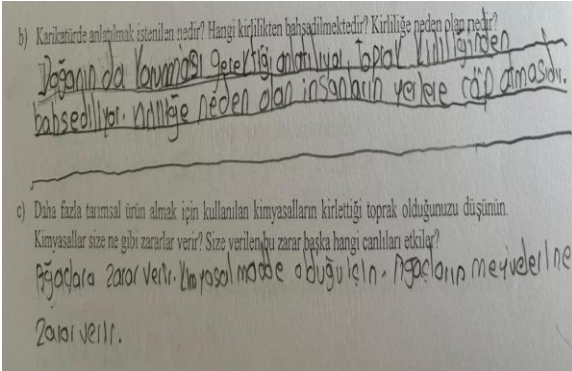 b) Karikatürde anlatılmak istenilen nedir? Hangi kirlilikten bahsedilmektedir? Kirliliğe neden olan nedir?
Doğanın da korunması gerektiği anlatılıyor, Toprak kirliliğinden
bahsediliyor. neden olan insanların yerlere çöp atmasıdır.
c) Daha fazla tarımsal ürün almak için kullanılan kimyasalların kirlettiği toprak olduğunuzu düşünün.
Kimyasallar size ne gibi zararlar verir? Size verilen bu zarar başka hangi canlıları etkiler?
Ağaçlara zarar verir. Kimyasal madde olduğu için. Ağaçların meyvelerine
zarar verir.